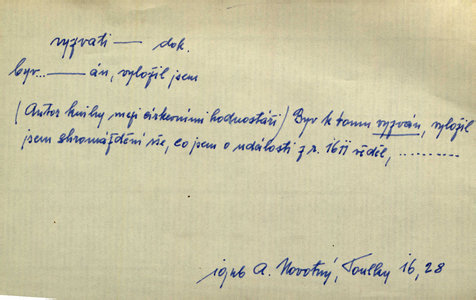 vyzvati — dok.
byv... — án, vyložil jsem
(Autor knihy mezi církevními hodnostáři) Byv k tomu vyzván, vyložil
jsem shromáždění vše, co jsem o události z r. 1611 věděl, ..........
A. Novotný, Toulky 16, 28